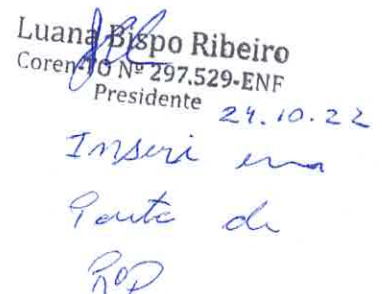 Luana Bispo Ribeiro
Coren-TO Nº 297.529-ENF
Presidente
24.10.22
Inserir em
Pauta de
ROP